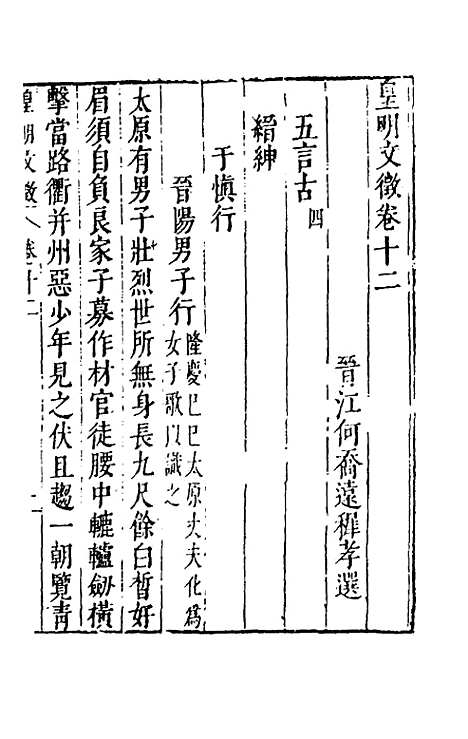 皇明文徵卷十二
晉江何喬遠穉孝選
五言古 四
縉紳
于慎行
晉陽男子行 隆慶己巳太原丈夫化為
女子歌以識之
太原有男子壯烈世所無身長九尺餘白晳好
眉須自負良家子募作材官徒腰中轆轤劒橫
擊當路衢并州惡少年見之伏且趨一朝覽青
皇明文徵 卷十二 一